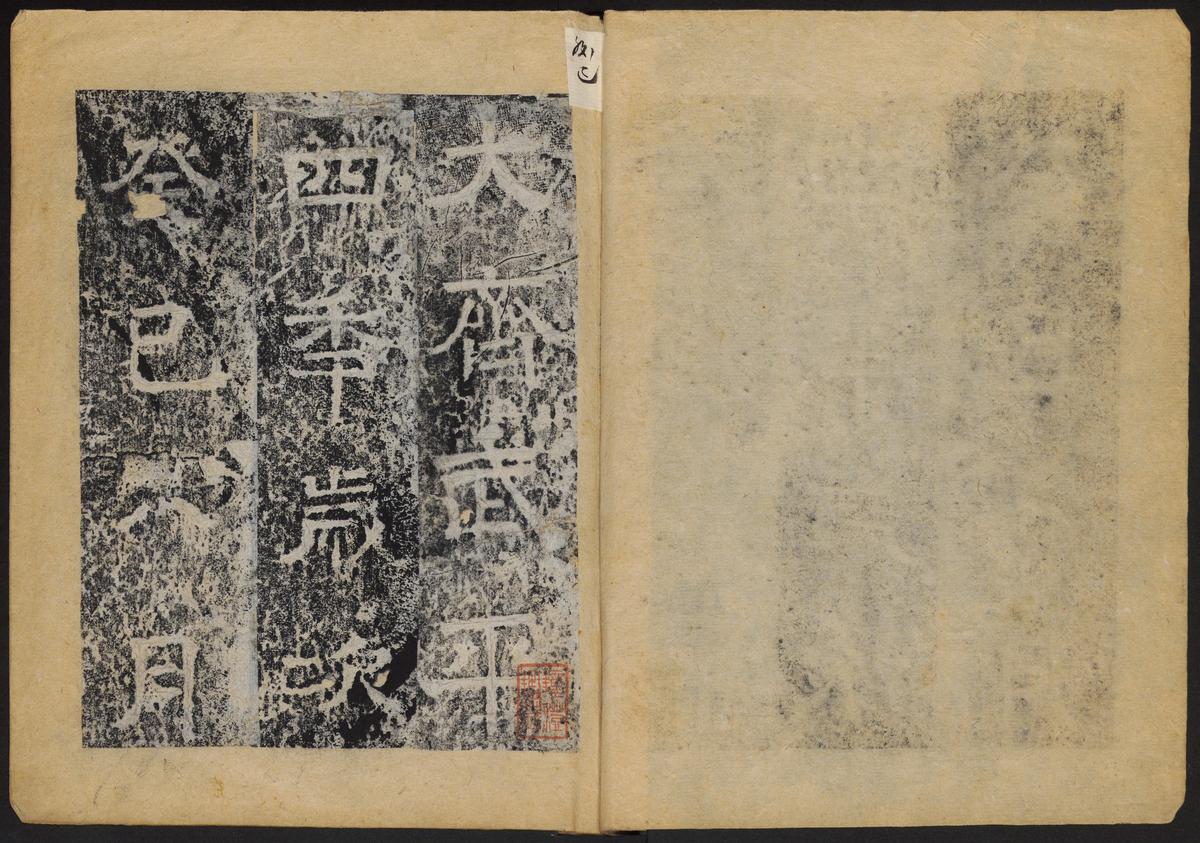 大齊武平
四年歲次
癸巳八月